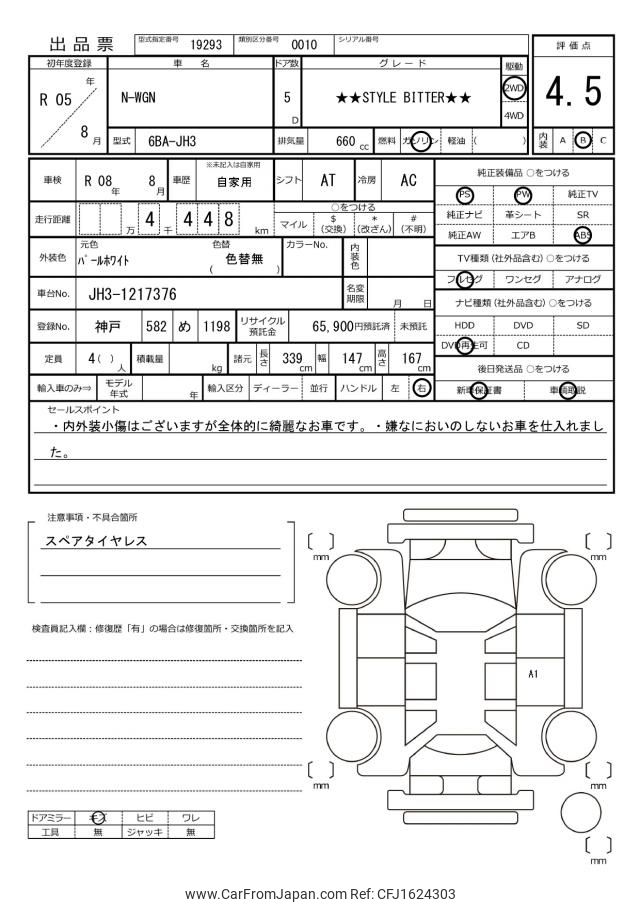 出品票 型式指定番号 19293 類別区分番号 0010 シリアル番号
評価点
4.5
内装 A B C
初年度登録 車名 ドア数 グレード 駆動
R 05 年 8 月 N-WGN 5 D ★★STYLE BITTER★★ 2WD
4WD
型式 6BA-JH3 排気量 660 cc 燃料 ガソリン 軽油 ( )
車検 R 08 年 8 月 車歴 ※未記入は自家用 自家用 シフト AT 冷房 AC
走行距離 万 4 千 4 4 8 km
○をつける
マイル $ (交換) * (改ざん) # (不明)
外装色 元色 パールホワイト 色替 ( 色替無 ) カラーNo. 内装色
車台No. JH3-1217376 名変期限 月 日
登録No. 神戸 582 め 1198 リサイクル預託金 65,900円預託済 未預託
定員 4( ) 人 積載量 kg 諸元 長さ 339 cm 幅 147 cm 高さ 167 cm
輸入車のみ⇒ モデル年式 年 輸入区分 ディーラー 並行 ハンドル 左 右
純正装備品 ○をつける
PS PW 純正TV
純正ナビ 革シート SR
純正AW エアB ABS
TV種類 (社外品含む) ○をつける
フルセグ ワンセグ アナログ
ナビ種類 (社外品含む) ○をつける
HDD DVD SD
DVD再生可 CD
後日発送品 ○をつける
新車保証書 車輌取説
セールスポイント
・内外装小傷はございますが全体的に綺麗なお車です。・嫌なにおいのしないお車を仕入れまし
た。
注意事項・不具合箇所
スペアタイヤレス
検査員記入欄:修復歴「有」の場合は修復箇所・交換箇所を記入
ドアミラー キズ ヒビ ワレ
工具 無 ジャッキ 無
mm
mm
A1
mm
mm
mm
www.CarFromJapan.com Ref: CFJ1624303